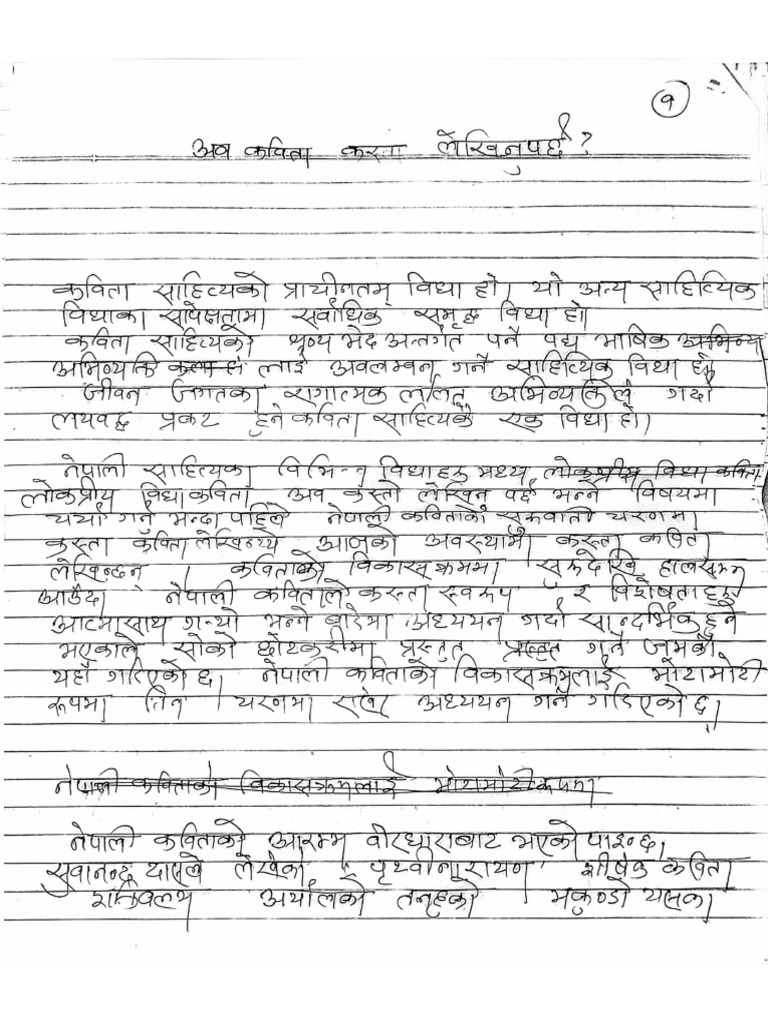 १
अव कविता कस्ता लेखिनुपर्छ ?
कविता साहित्यको प्राचीनतम् विधा हो। यो अन्य साहित्यिक
विधाका सापेक्षतामा सर्वाधिक समृद्ध विधा हो।
कविता साहित्यको श्रव्य भेद अन्तर्गत पर्ने पद्य भाषिक अभिव्य
अभिव्यक्ति कला हो लाई अवलम्बन गर्ने साहित्यिक विधा हो
जीवन जगतका रागात्मक ललित अभिव्यक्तिले गर्दा
लयवद्ध प्रकट हुने कविता साहित्यकै एक विधा हो।
नेपाली साहित्यका विभिन्न विधाहरु मध्य लोकप्रीय विधा कविता
लोकप्रीय विधा कविता अव कस्तो लेखिनु पर्छ भन्ने विषयमा
चर्चा गर्नु भन्दा पहिले नेपाली कविताको सुरुवाती चरणमा
कस्ता कविता लेखिन्थ्ये आजको अवस्थामा कस्ता कविता
लेखिन्छन् । कविताको विकासक्रममा सुरुदेखि हालसम्म
आउँदा नेपाली कविताले कस्ता स्वरूप र विशेषताहरु
आत्मासाथ गर्‍यो भन्ने बारेमा अध्ययन गर्दा सान्दर्भिक हुने
भएकाले सोको छोटकरीमा प्रस्तुत प्रस्तुत गर्ने जमर्को
यहाँ गरिएको छ। नेपाली कविताको विकासक्रमलाई मोटामोटी
रूपमा तिन चरणमा राखेर अध्ययन गर्ने गरिएको छ।
नेपाली कविताको विकासक्रमलाई मोटामोटी रूपमा
नेपाली कविताको आरम्भ वीरधाराबाट भएको पाइन्छ।
सुवानन्द दासले लेखेको पृथ्वीनारायण शीर्षक कविता
शक्तिवल्लभ अर्यालको तनहुको भकुण्डो यसका